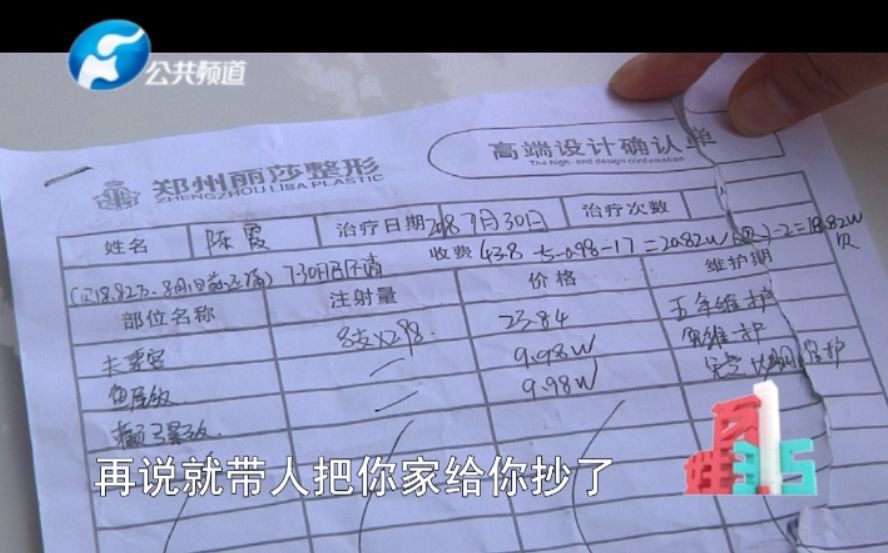 公共频道
郑州丽莎整形
ZHENGZHOU LISA PLASTIC
高端设计确认单
The high-end design confirmation
姓名 陈霞 治疗日期 2018 7月30日 治疗次数
收费 43.8-5-0.98-17=20.82W(欠)-2=18.82W
欠
部位名称 注射量 价格 维护期
8支×2.98 23.84 五年维护
鱼尾纹 9.98W 维护
9.98W
再说就带人把你家给你抄了
百姓315